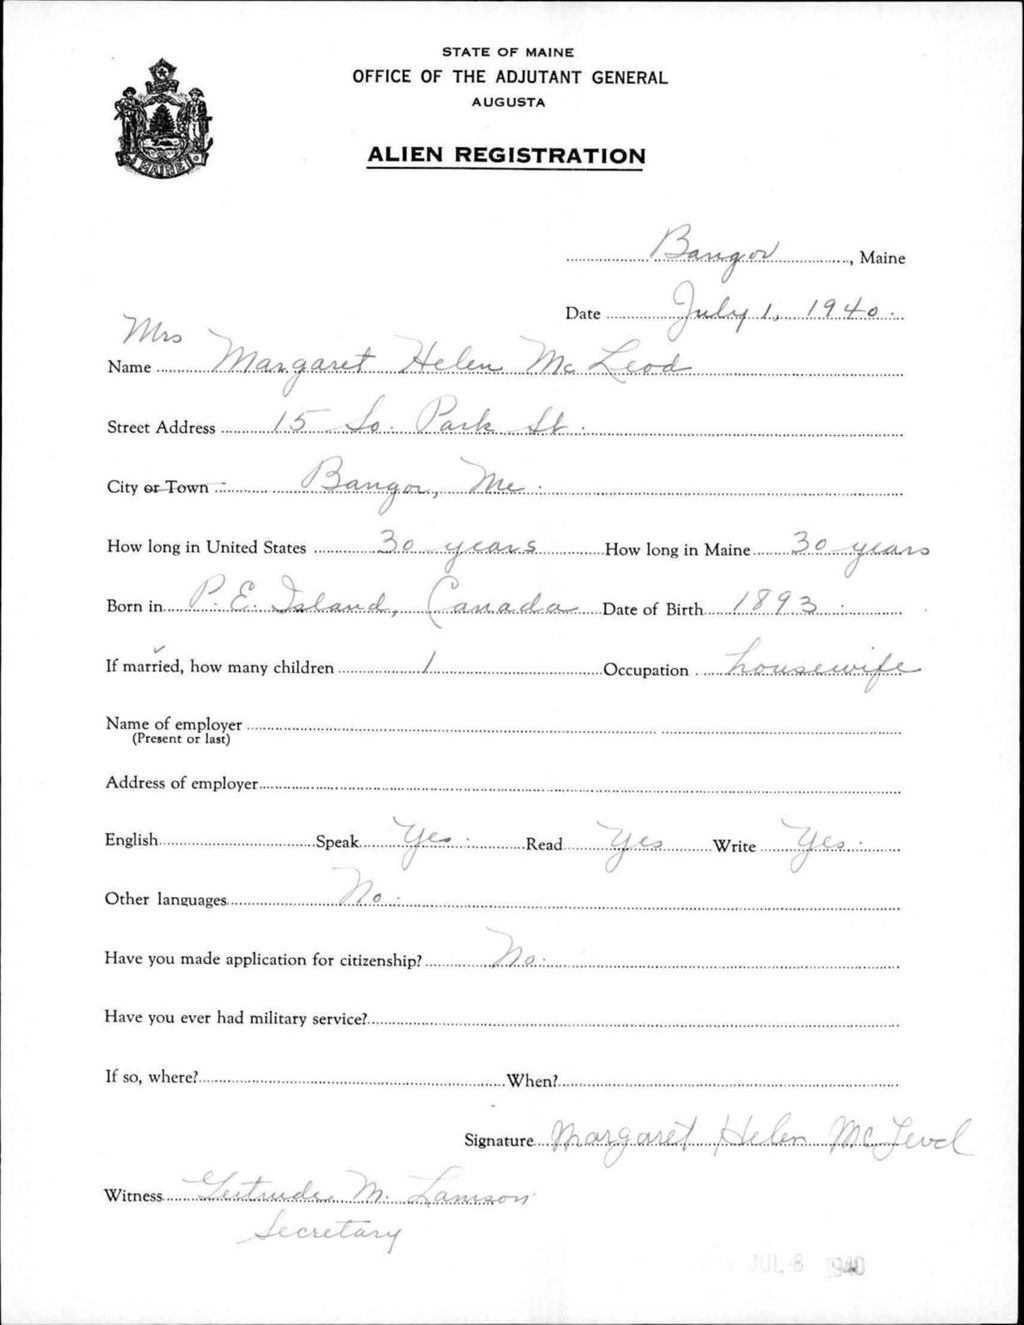 STATE OF MAINE
OFFICE OF THE ADJUTANT GENERAL
AUGUSTA
ALIEN REGISTRATION
MAINE
Bangor, Maine
Date July 1, 1940.
Mrs
Name Margaret Helen McLeod
Street Address 15 So. Park St.
City or Town Bangor, Me.
How long in United States 30 years How long in Maine 30 years
Born in P. E. Island, Canada Date of Birth 1893.
If married, how many children 1 Occupation housewife
Name of employer
(Present or last)
Address of employer
English Speak Yes. Read Yes Write Yes.
Other languages No.
Have you made application for citizenship? No.
Have you ever had military service?
If so, where? When?
Signature Margaret Helen McLeod
Witness Gertrude M. Lamson
Secretary
JUL 8 1940